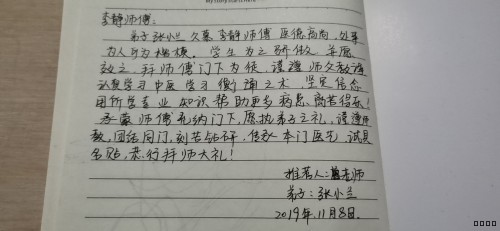 My story starts here
李静师傅：
弟子张小兰久慕李静师傅医德高尚，处事
为人可为楷模。学生为之骄傲，并愿
效之，拜师傅门下为徒，谨遵师父教诲
认真学习中医学习衡通之术，坚定信念
用所学专业知识帮助更多病患，离苦得乐！
承蒙师傅允纳门下，愿执弟子之礼，谨遵师
教，团结同门，刻苦钻研，传承本门医先，试具
名贴，恭行拜师大礼！
推荐人：老师
弟子：张小兰
2019年11月8日.